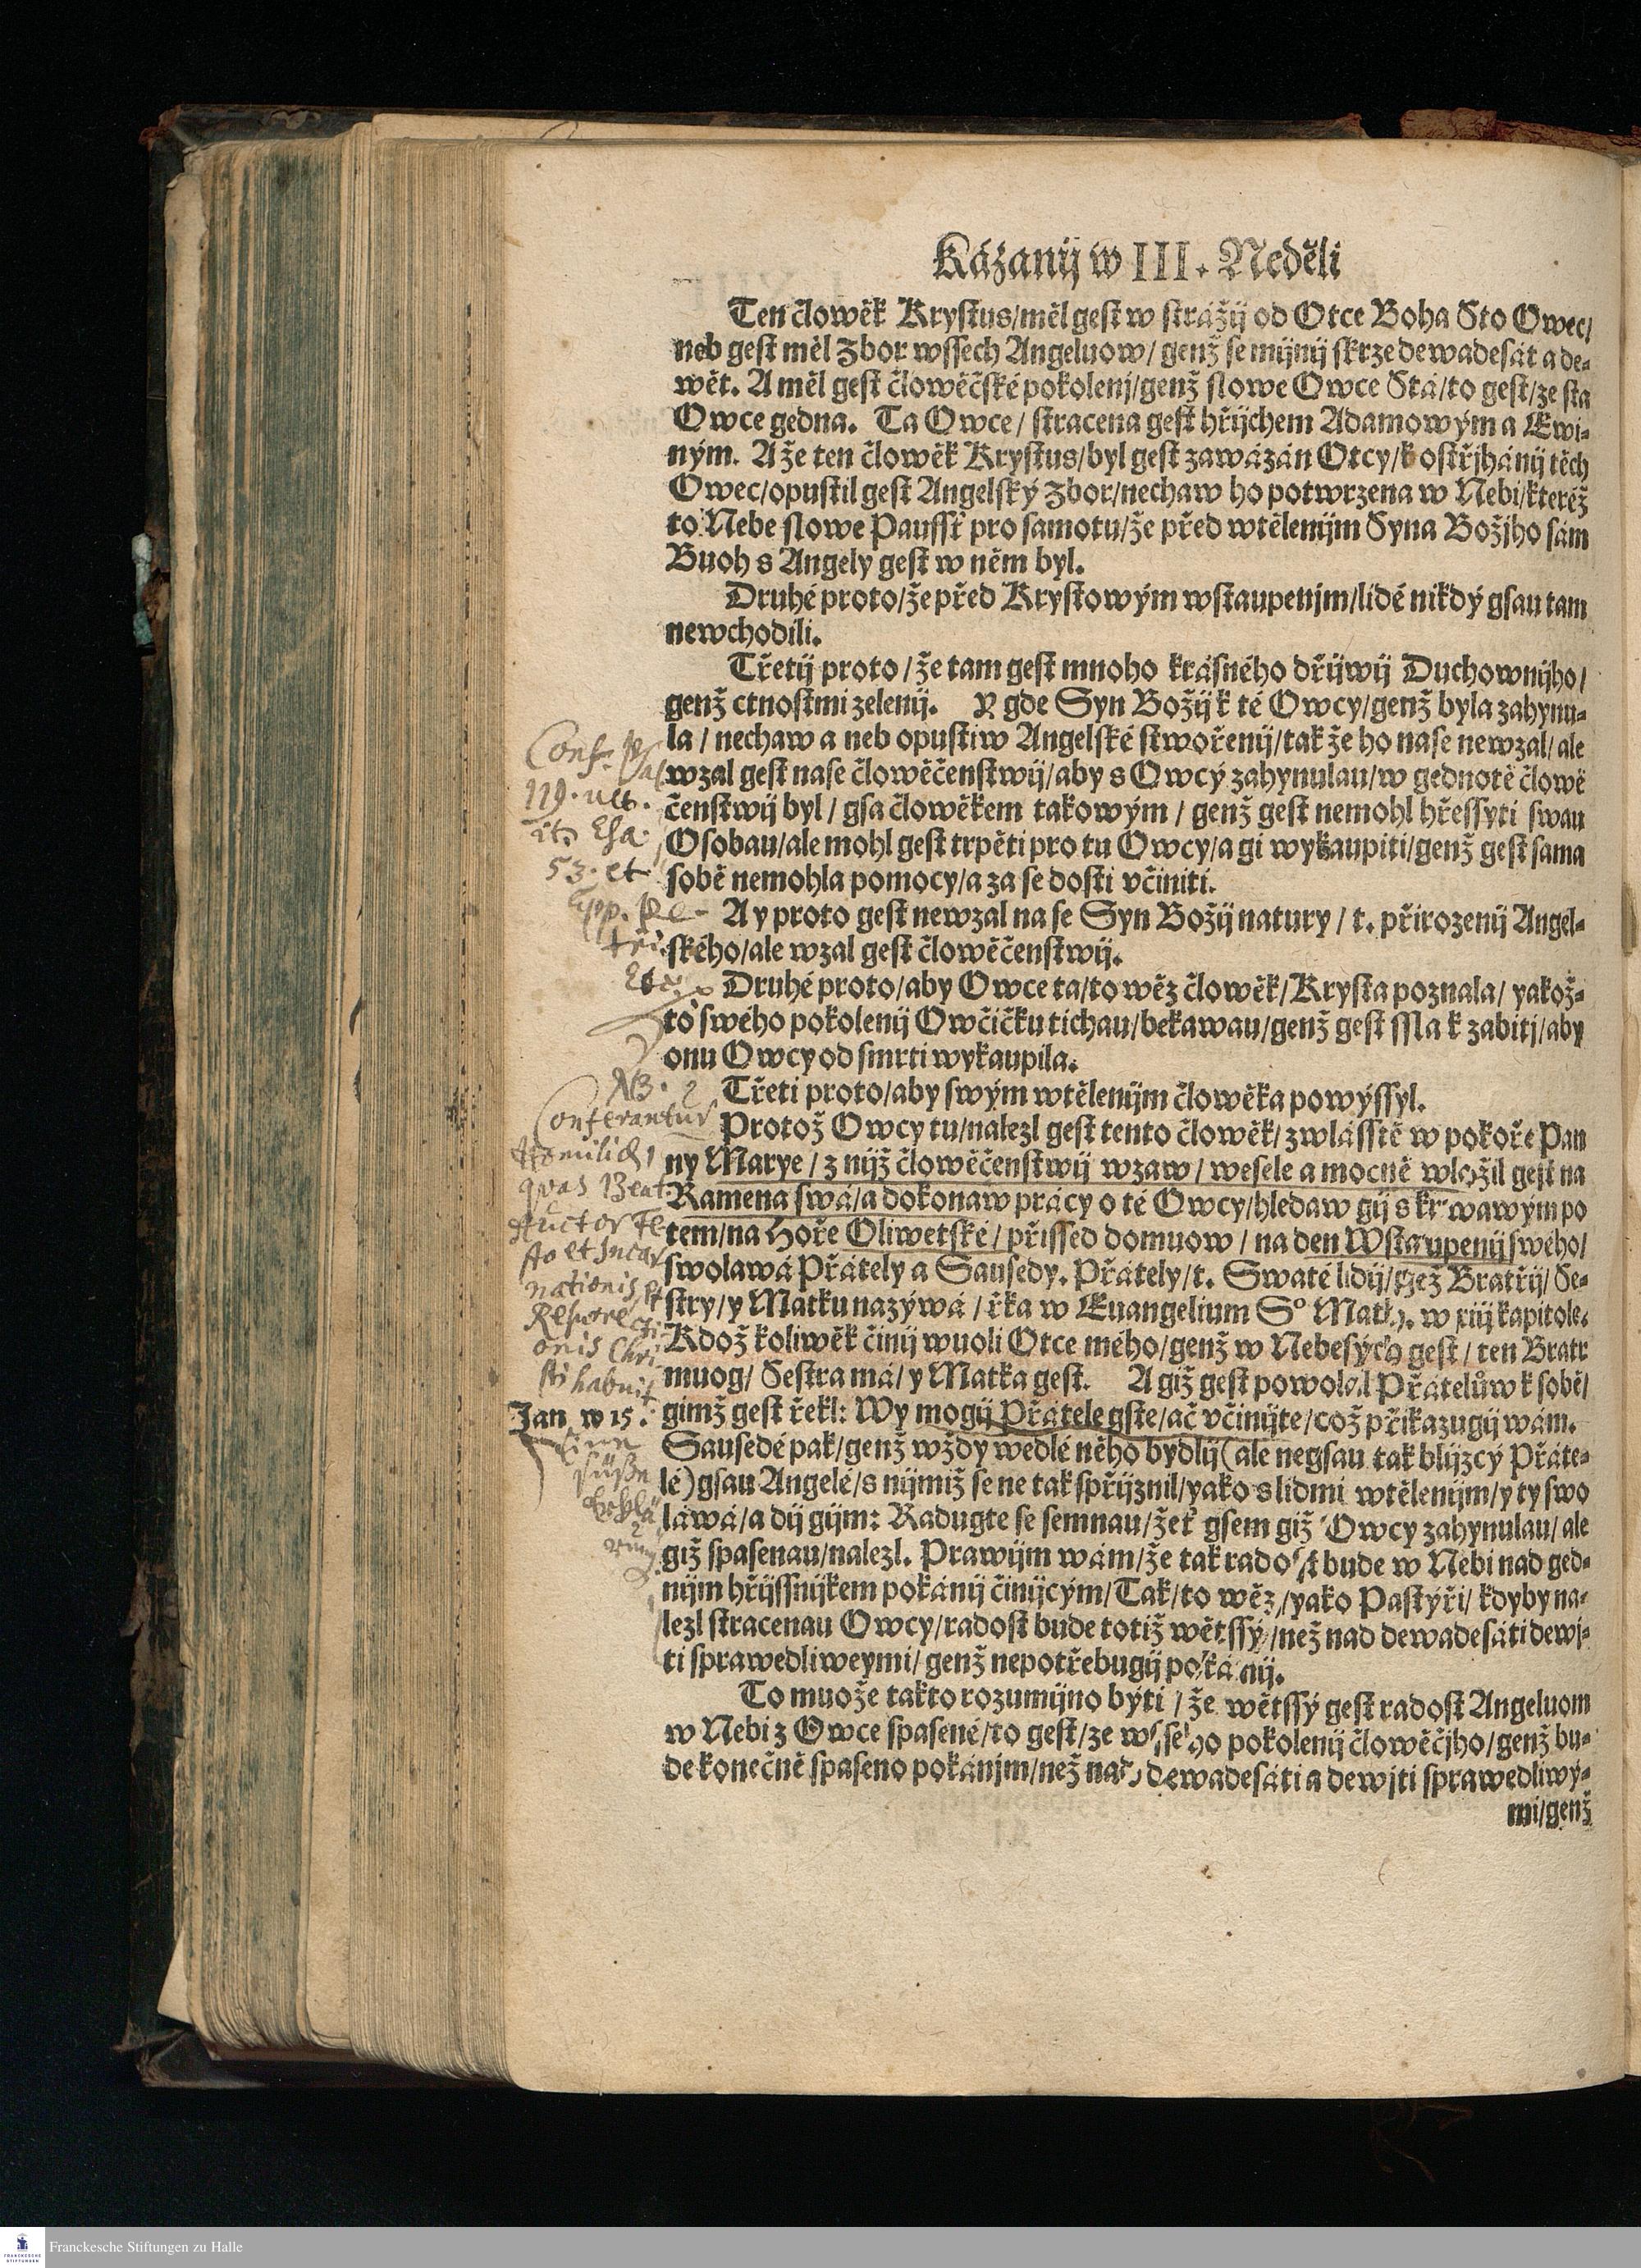 Kázanij w III. Neděli
Ten člowěk Krystus/měl gest w strážij od Otce Boha Sto Owec/
neb gest měl Zbor wssech Angeluow/ genž se mijnij skrze dewadesát a de-
wět. A měl gest člowěčské pokolenj/genž slowe Owce Stá/to gest/ze sta
Owce gedna. Ta Owce/ stracena gest hřijchem Adamowým a Ewi-
ným. A že ten člowěk Krystus/byl gest zawázán Otcy/k ostřjhánij těch
Owec/opustil gest Angelský Zbor/nechaw ho potwrzena w Nebi/kteréž
to Nebe slowe Paussť pro samotu/že před wtělenijm Syna Božjho sám
Buoh s Angely gest w něm byl.
Druhé proto/že před Krystowým wstaupenjm/lidé nikdý gsau tam
newchodili.
Třetij proto/že tam gest mnoho krásného dřijwij Duchownijho/
genž ctnostmi zelenij. Y gde Syn Božij k té Owcy/genž byla zahynu-
la/ nechaw a neb opustiw Angelské stwořenij/tak že ho nase newzal/ ale
wzal gest nase člowěčenstwij/aby s Owcý zahynulau/w gednotě člowě
čenstwij byl/ gsa člowěkem takowým/ genž gest nemohl hřessyti swau
Osobau/ale mohl gest trpěti pro tu Owcy/a gi wykaupiti/genž gest sama
sobě nemohla pomocy/a za se dosti včiniti.
A y proto gest newzal na se Syn Božij natury/ t. přirozenij Angel-
ského/ale wzal gest člowěčenstwij.
Druhé proto/aby Owce ta/to wěz člowěk/Krysta poznala/ yakož-
to swého pokolenij Owčičku tichau/bekawau/genž gest ssla k zabitj/aby
onu Owcy od smrti wykaupila.
Třeti proto/aby swým wtělenijm člowěka powýssyl.
Protož Owcy tu/nalezl gest tento člowěk/ zwlásstě w pokoře Pan
ny Marye/ z nijž člowěčenstwij wzaw/ wesele a mocně wložil gest na
Ramena swá/a dokonaw prácy o té Owcy/hledaw gij s krwawým po
tem/na Hoře Oliwetské/ přissed domuow/ na den Wstaupenij swého/
swolawá Přátely a Sausedy. Přátely/t. Swaté lidij/gež Bratřij/ Se-
stry/y Matku nazýwá/ řka w Euangelium So Math. w xiij kapitole.
Kdož koliwěk činij wuoli Otce mého/genž w Nebesých gest/ ten Bratr
muog/ Sestra má/ y Matka gest. A giž gest powolal Přátelůw k sobě/
Jan w 15. gimž gest řekl: Wy mogij Přátele gste/ač včinijte/což přikazugij wám.
Sausedé pak/genž wždy wedlé něho bydlij (ale negsau tak blijzcý Přáte-
lé) gsau Angelé/s nijmiž se ne tak spřijznil/yako s lidmi wtělenijm/y ty swo
láwá/a dij gijm: Radugte se semnau/žeť gsem giž Owcy zahynulau/ ale
giž spasenau/nalezl. Prawijm wám/že tak radost bude w Nebi nad ged-
nijm hřijssnijkem pokánij činijcým/Tak/to wěz/yako Pastýři/ kdyby na-
lezl stracenau Owcy/radost bude totiž wětssý/než nad dewadesáti dewj-
ti sprawedliweymi/ genž nepotřebugij pokánij.
To muože takto rozumijno býti/ že wětssý gest radost Angeluom
w Nebi z Owce spasené/to gest/ze wsseho pokolenij člowěčjho/genž bu-
de konečně spaseno pokánjm/než nad dewadesáti a dewjti sprawedliwý-
mi/genž
Conf. Psal
119. ult.
it. Esa.
53. et
Epp. Pe-
tri.
NB.
Conferantur
Homiliae
quas Beat
Auctor Fe
sto et Incar
nationis et
Resurrecti
onis Chri
sti habuit
Eine
süße
Erklä
rung
Franckesche Stiftungen zu Halle